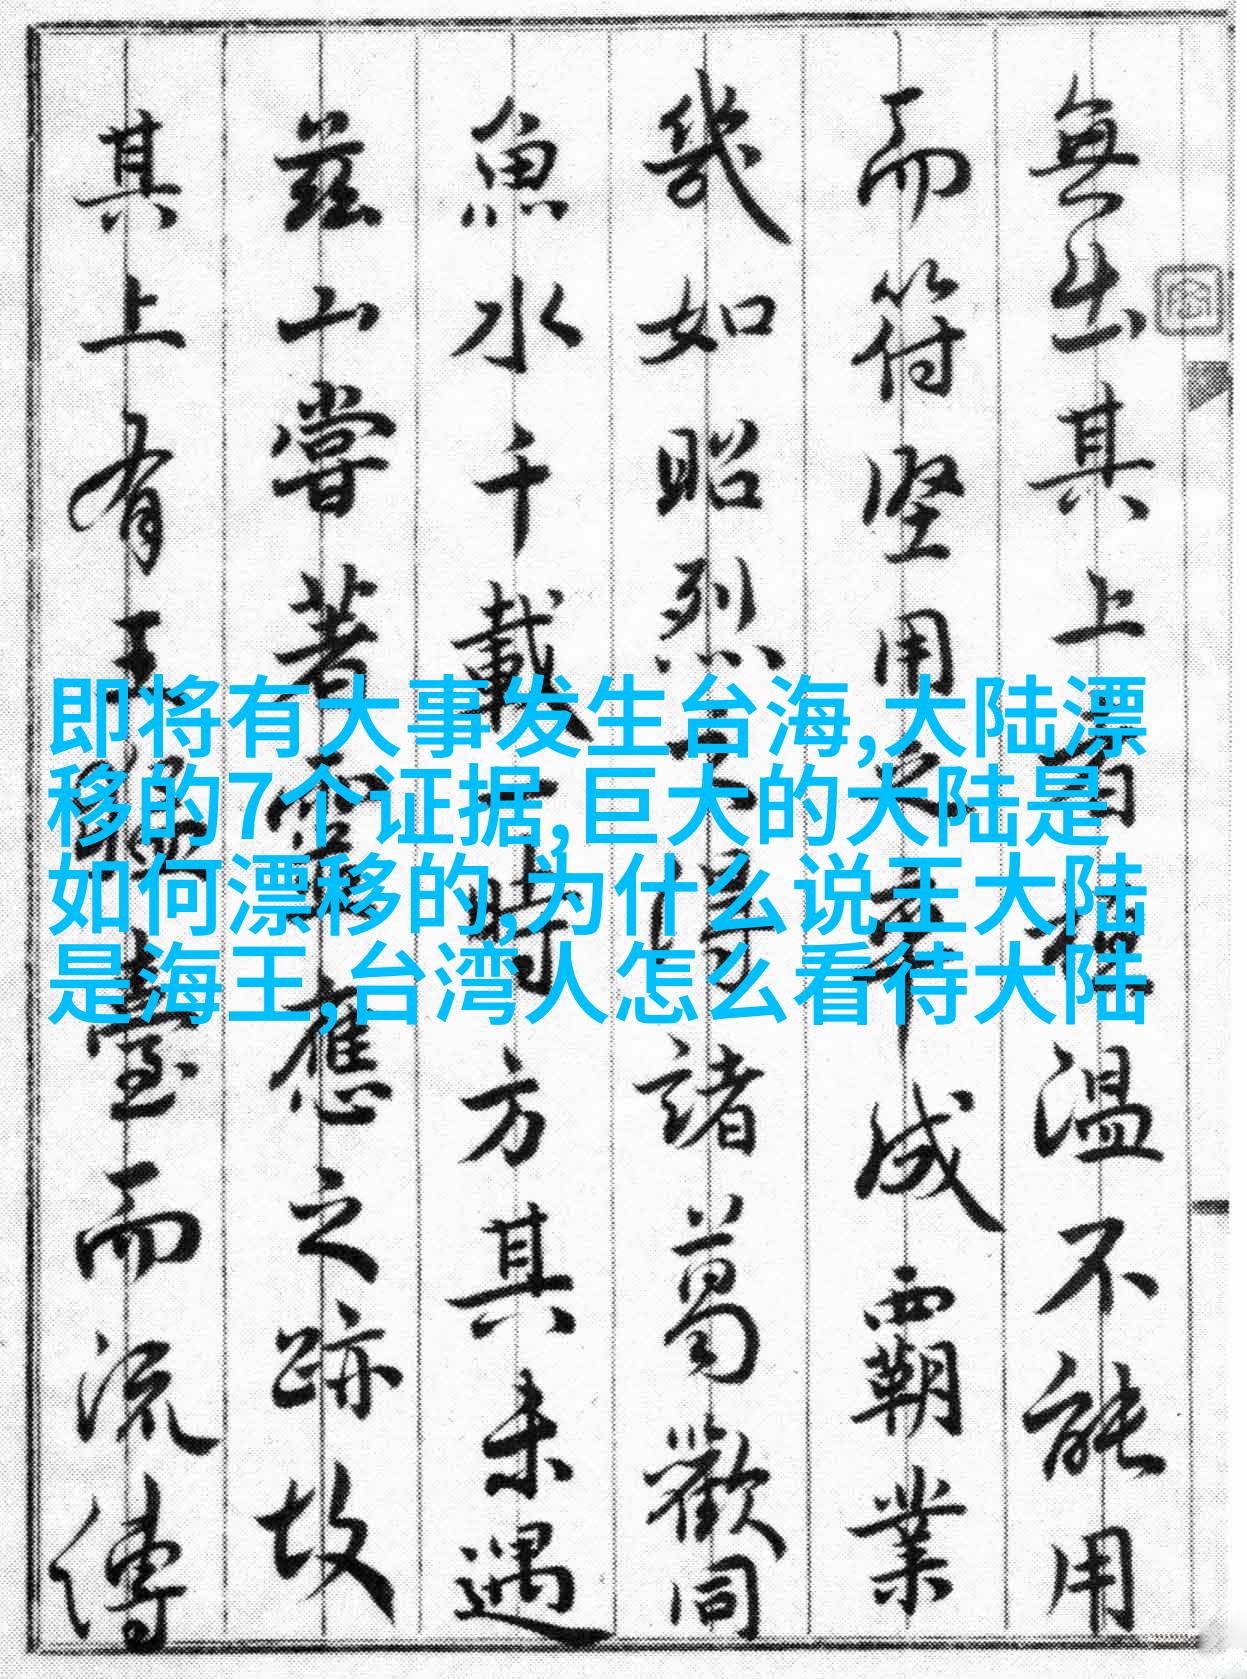 即将有大事发生台海,大陆漂
移的7个证据,巨大的大陆是
如何漂移的,为什么说王大陆
是海王,台湾人怎么看待大陆
無出其上者桓溫不能用
而符堅用之卒成霸業
幾如昭烈之得諸葛歡同
魚水千載一時方其未遇
茲山嘗著靈應之跡故
其上有王猛臺而流傳